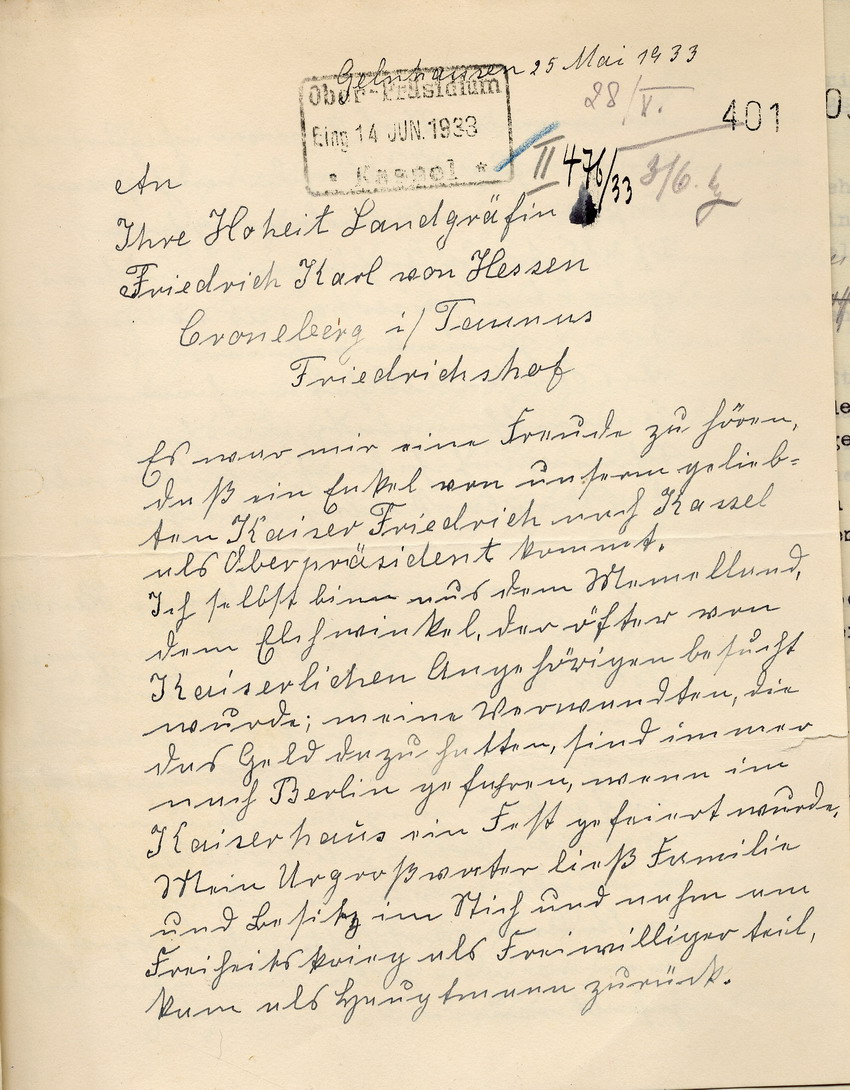 Gelnhausen 25 Mai 1933
Ober-Präsidium
Eing 14 JUN. 1933
* Kassel *
28/V.
401
II 476/33
3/6.
An
Ihre Hoheit Landgräfin
Friedrich Karl von Hessen
Croneberg i/ Taunus
Friedrichshof
Es war mir eine Freude zu hören,
daß ein Enkel von unserm gelieb=
ten Kaiser Friedrich nach Kassel
als Oberpräsident kommt.
Ich selbst binn aus dem Memelland,
dem Elchwinkel, der öfter von
Kaiserlichen Angehörigen besucht
wurde; meine Verwandten, die
das Geld dazu hatten, sind immer
nach Berlin gefahren, wenn im
Kaiserhaus ein Fest gefeiert wurde.
Mein Urgroßvater ließ Familie
und Besitz im Stich und nahm am
Freiheitskrieg als Freiwilliger teil,
kam als Hauptmann zurück.